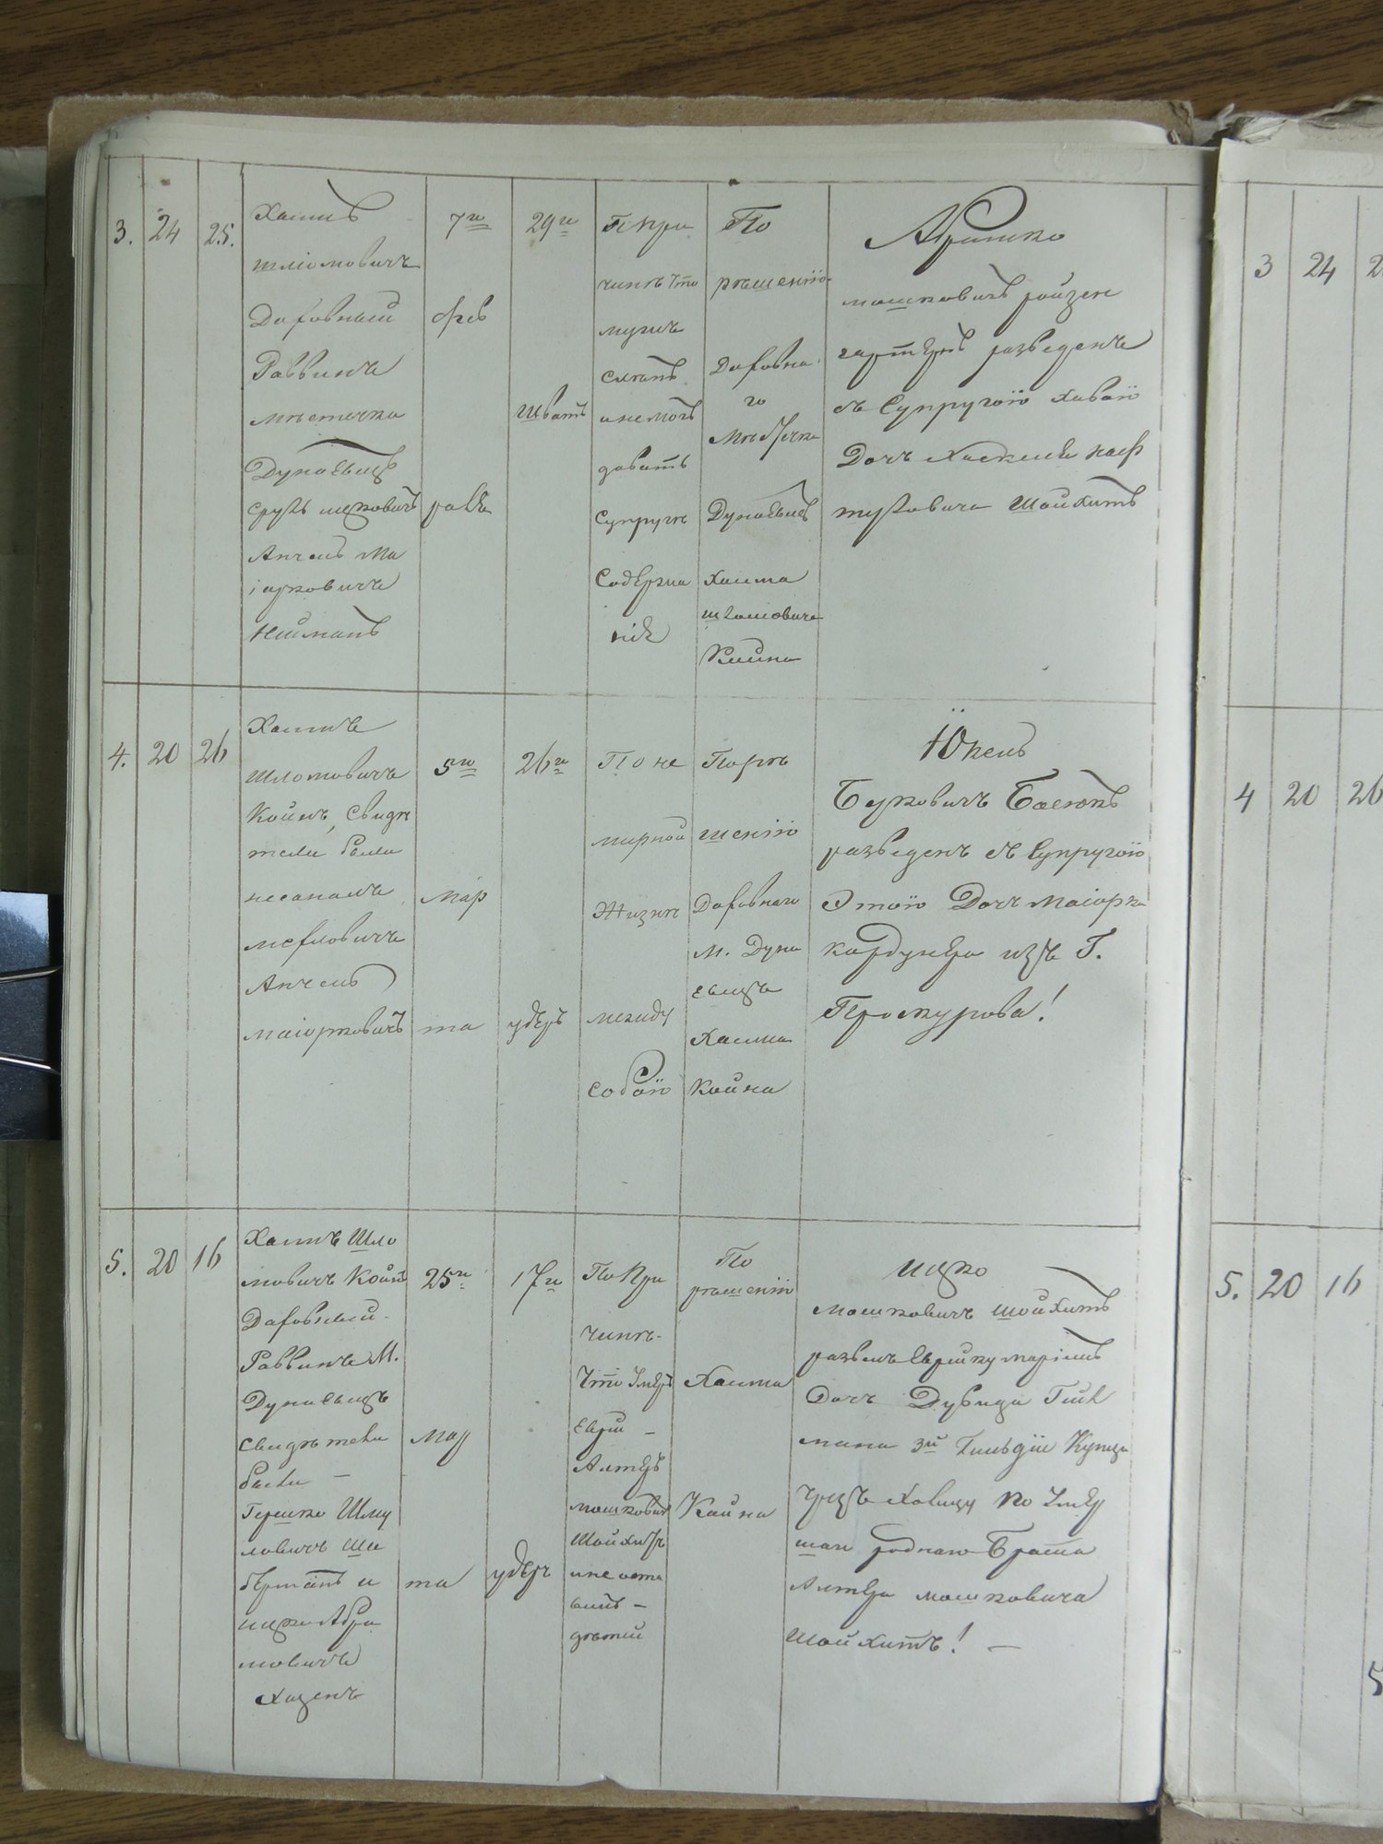 3.
24
25.
Хаимъ
шліомовичъ
Даховный
Раввинъ
мѣстечка
Дунаевцъ
сруль ицковичъ
Анчель Ма
іорковичъ
Нейманъ
7го
фев
раля
29го
Шватъ
По при
чинѣ что
мужъ
слѣпъ
и не могъ
давать
Супругѣ
Содержа
ніе
По
рѣшенію
Даховна
го
Мѣстечка
Дунаевцъ
Хаима
шліомовича
Койна
Абрамко
мошковичъ ройзен
гартенъ разведенъ
съ Супругою Хавою
Дочъ Хаскеля наф
туловича Шойхитъ
4.
20
26
Хаимъ
Шломовичъ
Койнъ, Свидѣ
тели были
несанелъ
мерловичъ
Анчель
маіорковичъ
5го
мар
та
26го
удеръ
По не
мирной
Жизнѣ
между
собою
Порѣ
шенію
Даховнаго
м. Дуна
евцъ
Хаима
Койна
Юкель
Берковичъ Басюкъ
разведенъ съ Супругою
Этою Дочъ маіорка
кардунера изъ Г.
Проскурова!
5.
20
16
Хаимъ Шло
мовичъ Койнъ
Даховный
Раввинъ М.
Дунаевцъ
Свидѣтели
были —
Гершко Шму
ловичъ Ши
берманъ и
ицко Абра
мовичъ
Хазенъ
25го
мар
та
17го
удеръ
По При
чинѣ
Что Умеръ
Еврей —
Алтеръ
мошковичъ
Шойхитъ
и не оста
вилъ —
дѣтей
По
рѣшенію
Хаима
Койна
ицко
мошковичъ шойхитъ
развелъ Еврейку маріемъ
Дочъ Дувида Гель
мана 3й Гильдіи Купца
чрезъ Халицу по Умер
шаго роднаго Брата
Алтера мошковича
Шойхитъ! —
3
24
2
4
20
26
5.
20
16